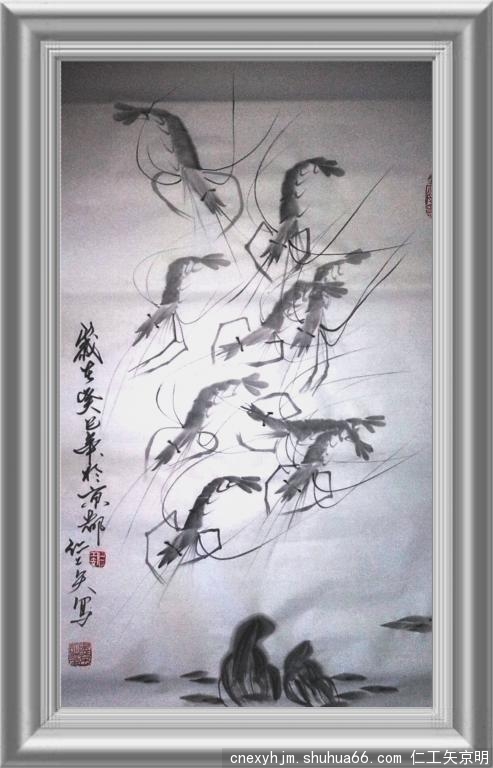 歲在癸巳年於京都仁工矢寫
cnexyhjm.shuhua66.com 仁工矢京明